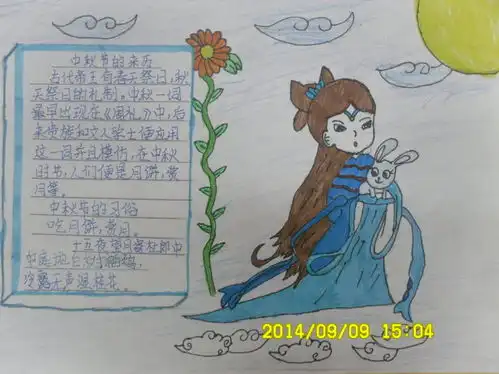 中秋节的来历
古代帝王有春天祭日,秋
天祭月的礼制。中秋一词
最早出现在《周礼》中,后
来贵族和文人学士便应用
这一词并且模仿,在中秋
时节,人们便是月饼,赏
月等。
中秋节的习俗
吃月饼,赏月。
十五夜望月寄杜郎中
中庭地白树栖鸦,
冷露无声湿桂花。
2014/09/09 15:04